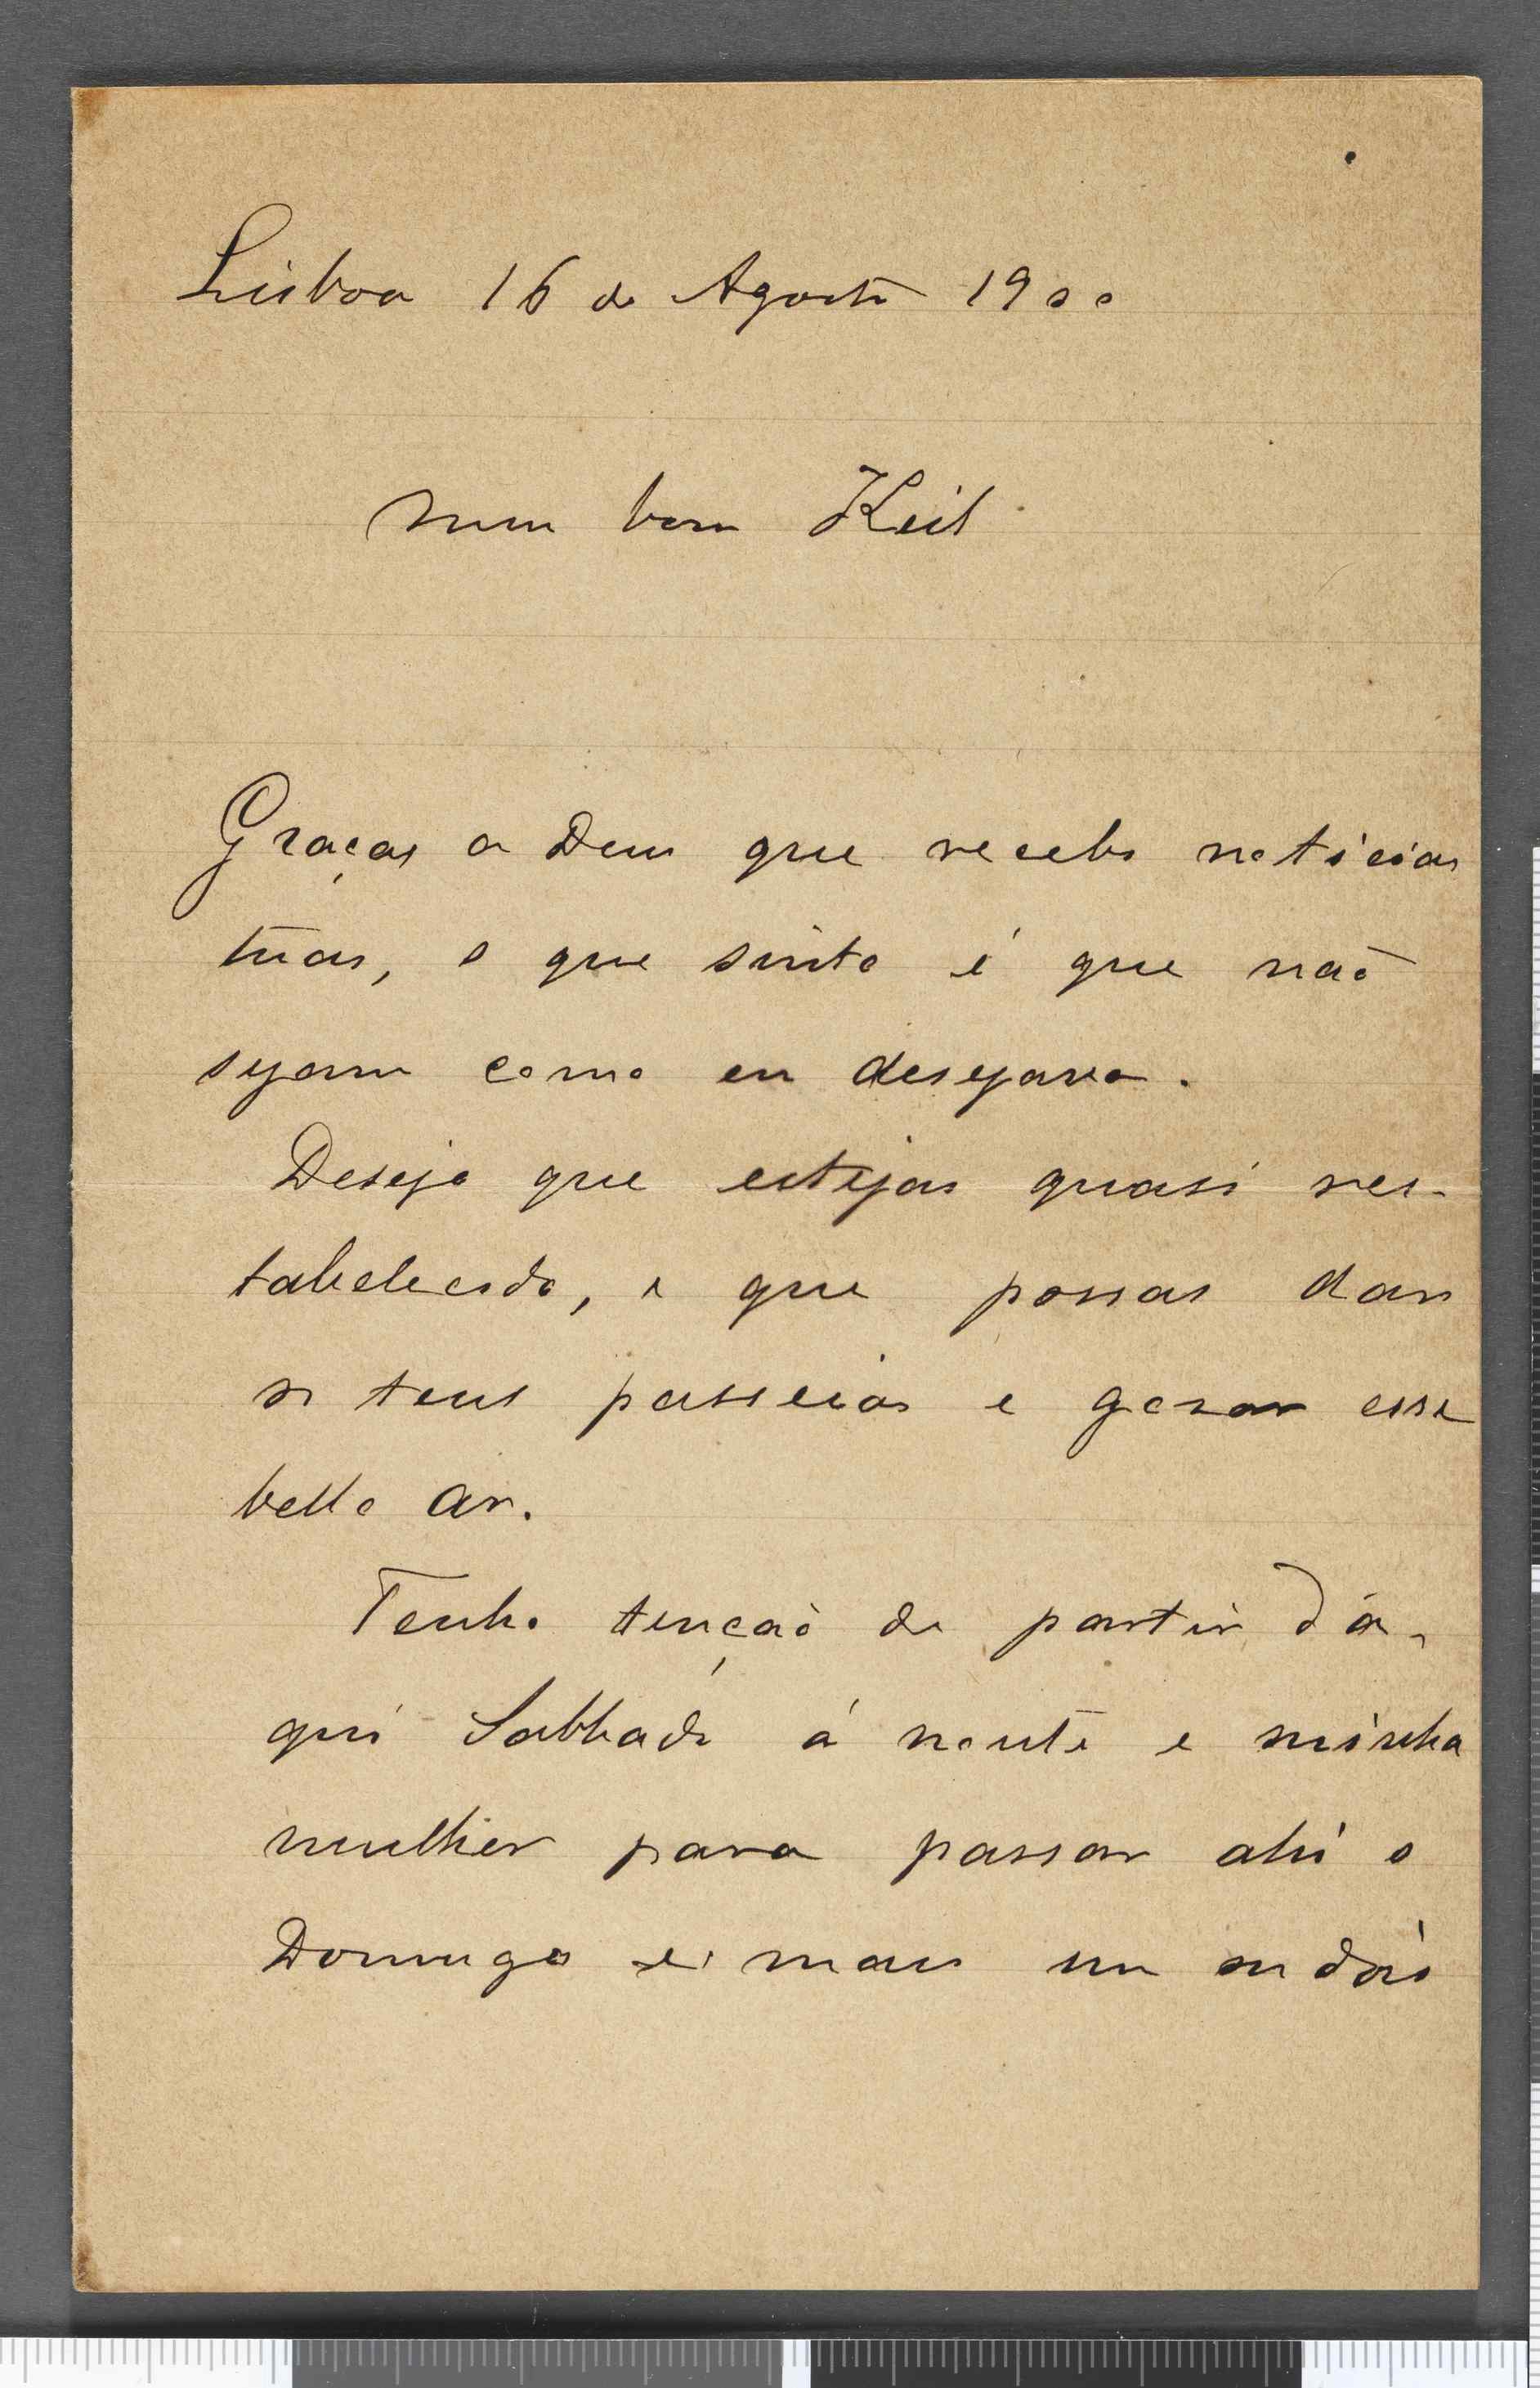 Lisboa 16 de Agosto 1900
Meu bom Keil
Graças a Deus que recebo noticias
tuas, o que sinto é que não
sejam como eu desejava.
Desejo que estejas quasi res-
tabelecido, e que possas dar
os teus passeios e gozar esse
bello ar.
Tenho tenção de partir d'a-
qui Sabbado á noute e minha
mulher para passar ahi o
Domingo e mais um ou dois